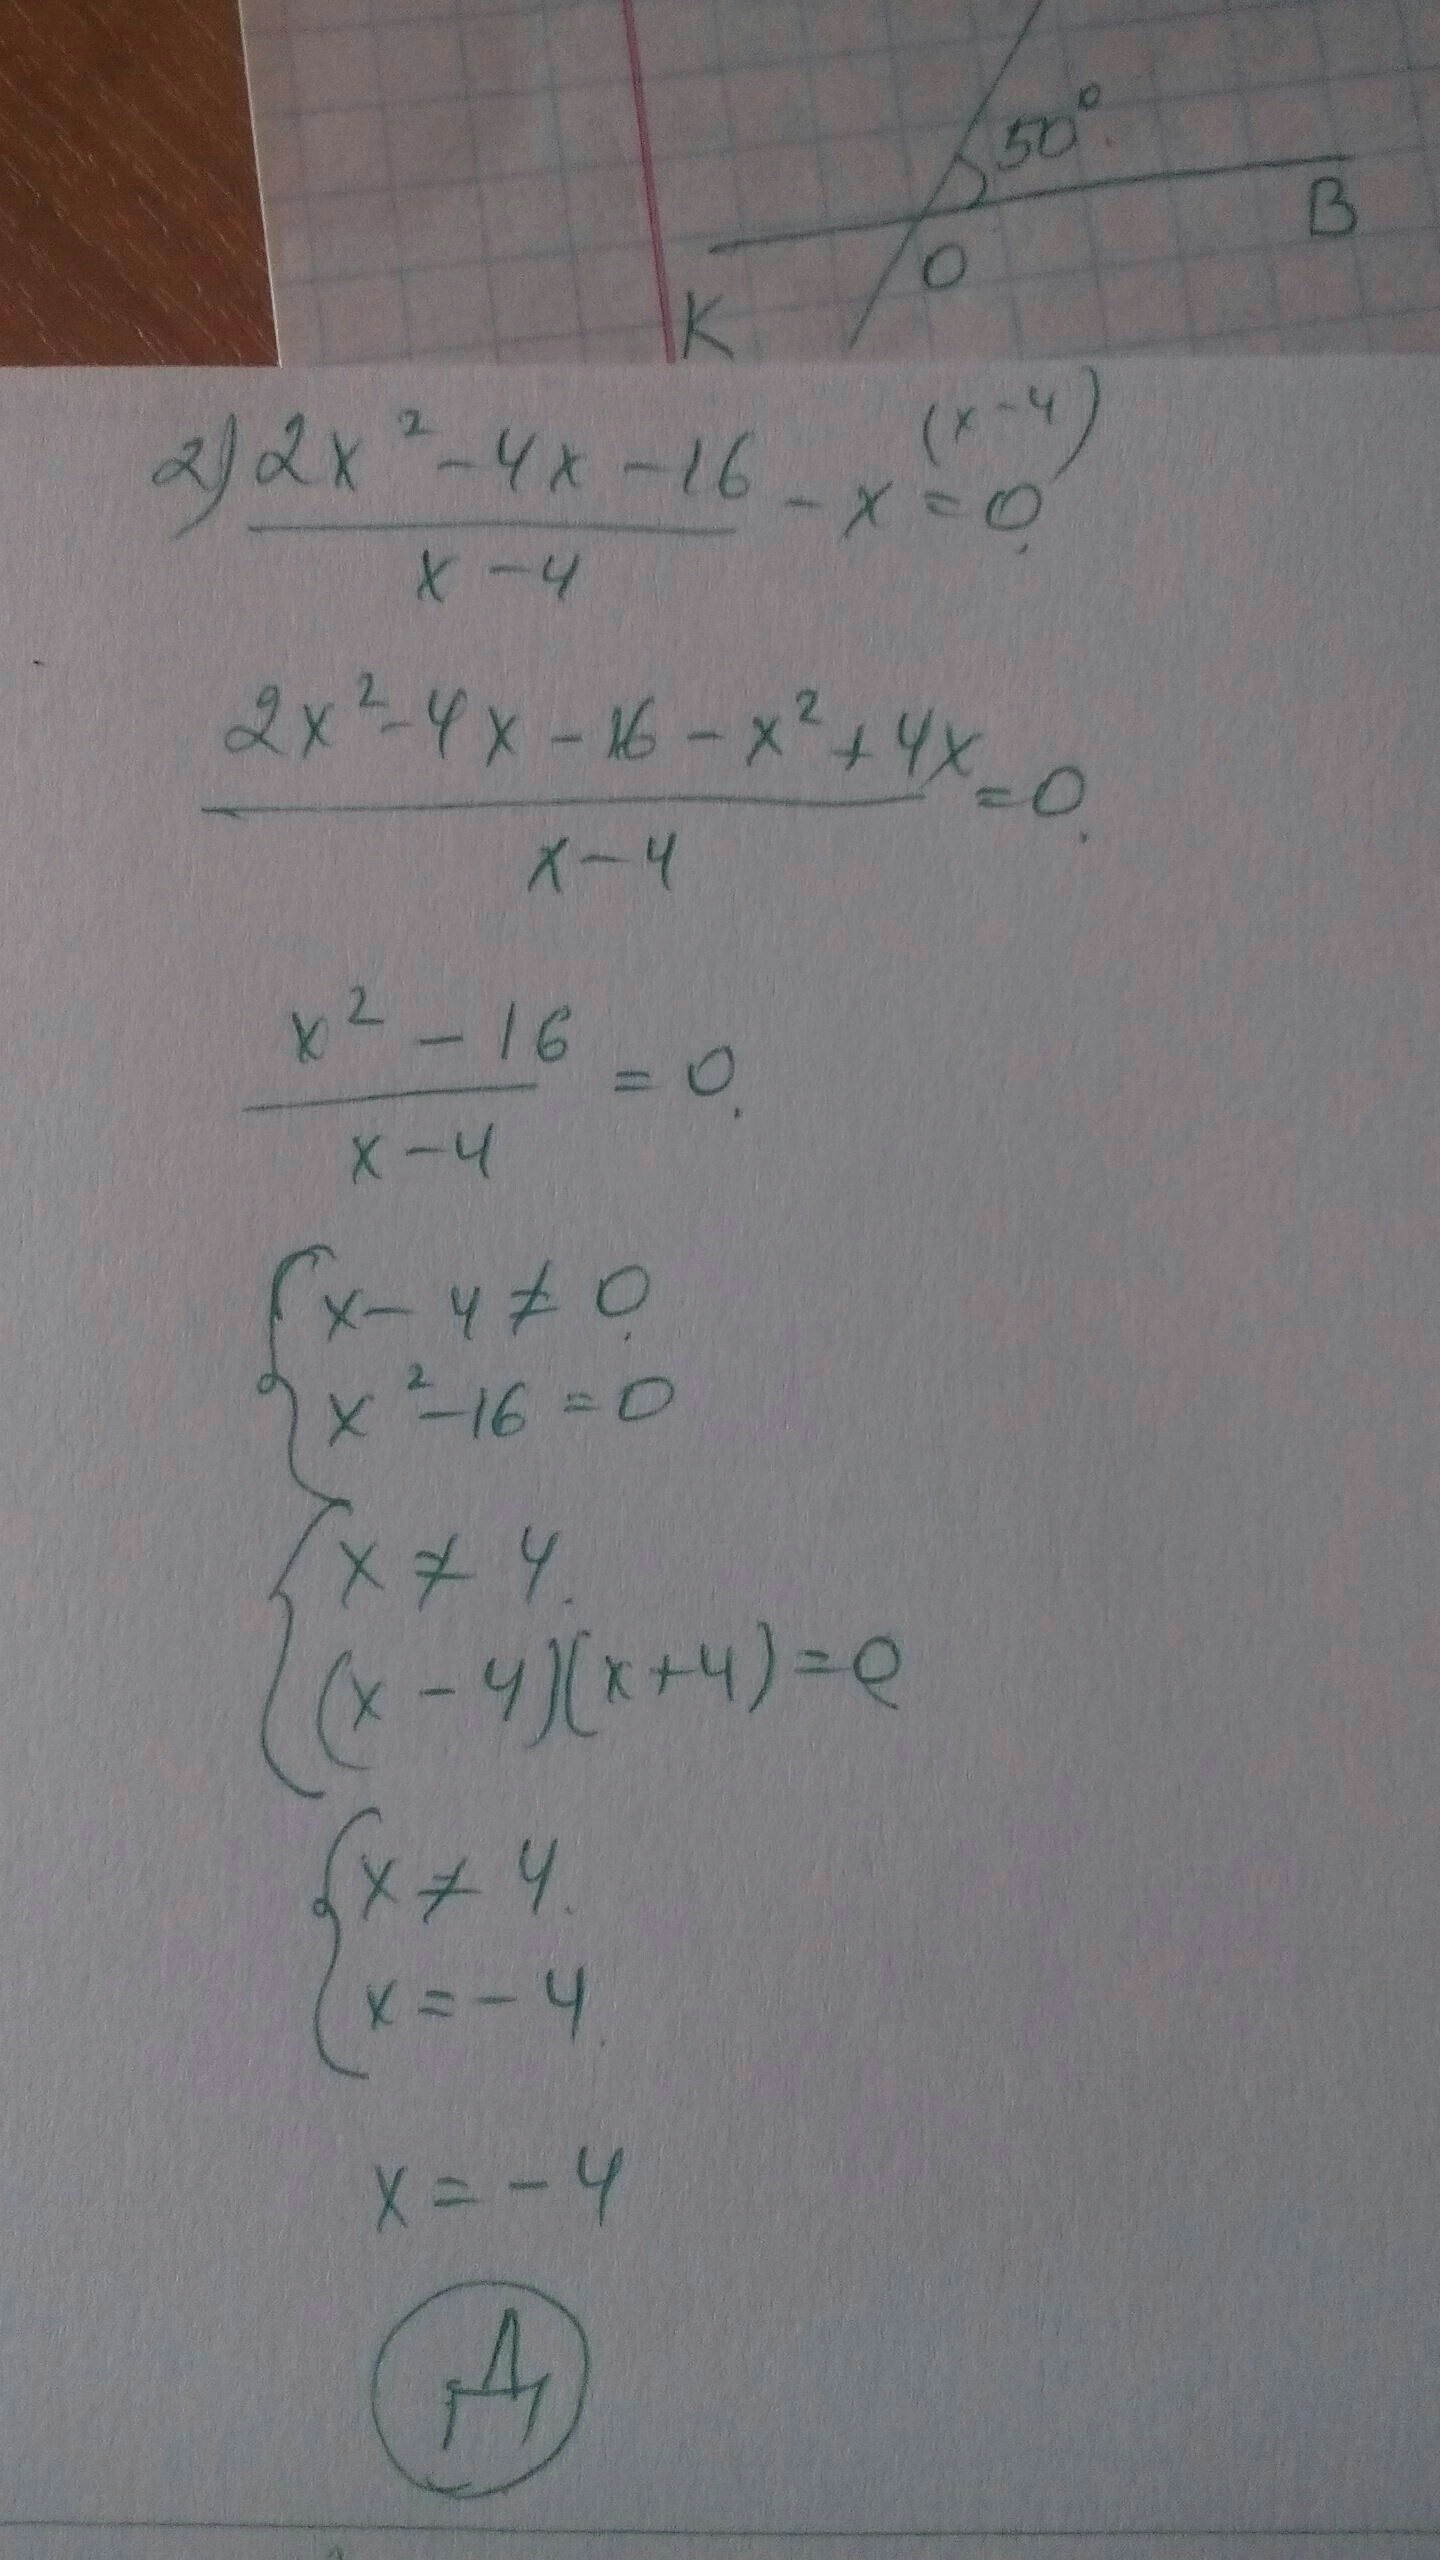 50°
B
O
K
(x-4)
2) (2x² - 4x - 16)/(x - 4) - x = 0.
(2x² - 4x - 16 - x² + 4x)/(x - 4) = 0.
(x² - 16)/(x - 4) = 0.
{ x - 4 ≠ 0.
x² - 16 = 0
{ x ≠ 4.
(x - 4)(x + 4) = 0
{ x ≠ 4.
x = -4.
x = -4
Д